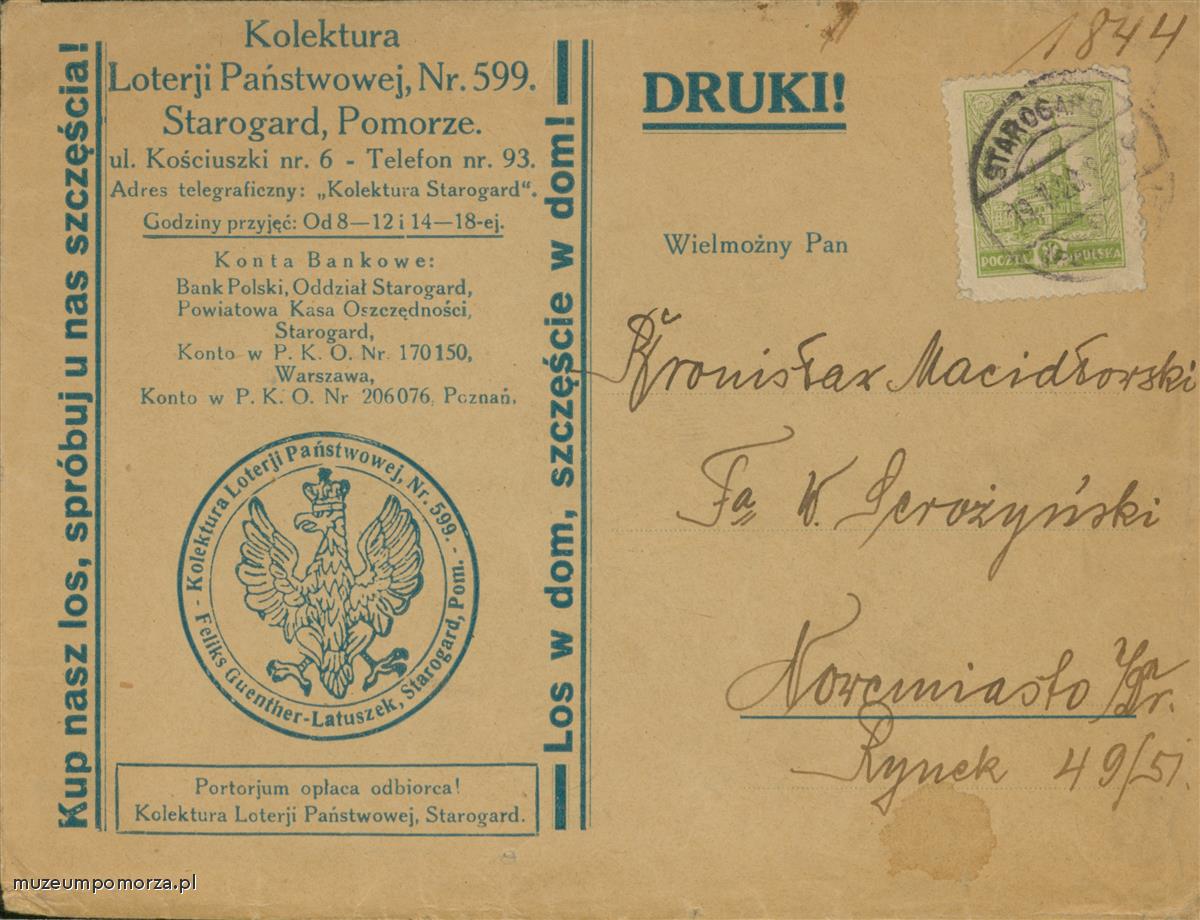 Kup nasz los, spróbuj u nas szczęścia!
Kolektura
Loterji Państwowej, Nr. 599.
Starogard, Pomorze.
ul. Kościuszki nr. 6 - Telefon nr. 93.
Adres telegraficzny: „Kolektura Starogard".
Godziny przyjęć: Od 8—12 i 14—18-ej.
Konta Bankowe:
Bank Polski, Oddział Starogard,
Powiatowa Kasa Oszczędności,
Starogard,
Konto w P. K. O. Nr. 170150,
Warszawa,
Konto w P. K. O. Nr 206076, Poznań.
- Kolektura Loterji Państwowej, Nr. 599. -
Feliks Guenther-Latuszek, Starogard, Pom.
Portorjum opłaca odbiorca!
Kolektura Loterji Państwowej, Starogard.
Los w dom, szczęście w dom!
DRUKI!
1844
STAROGARD
POCZTA POLSKA
Wielmożny Pan
Bronisław Macidłowski
Fa W.
Nowemiasto
Rynek 49/51.
muzeumpomorza.pl